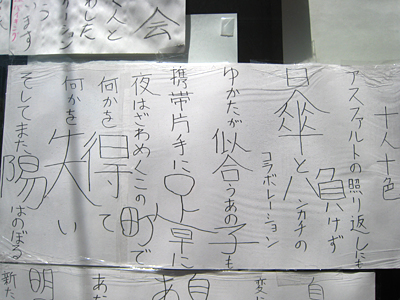 会
んと
わした
います
十人十色
アスファルトの照り返しにも
負けず
日傘とハンカチの
コラボレーション
ゆかたが似合うあの子も
携帯片手に足早に
夜はざわめくこの町で
何かを得て
何かを失い
そしてまた陽はのぼる
自
あ
明
新た